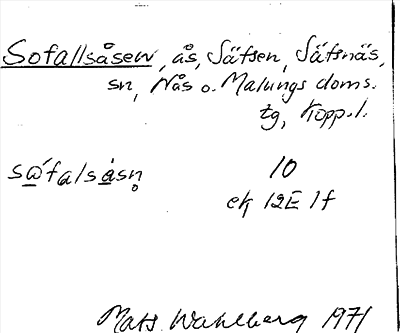 Sofallsåsen, ås, Säfsen, Säfsnäs,
sn, Nås o. Malungs doms.
tg, Kopp.l.
sώfalsåsn̥ 10
ek 12E 1f
Mats Wahlberg 1971